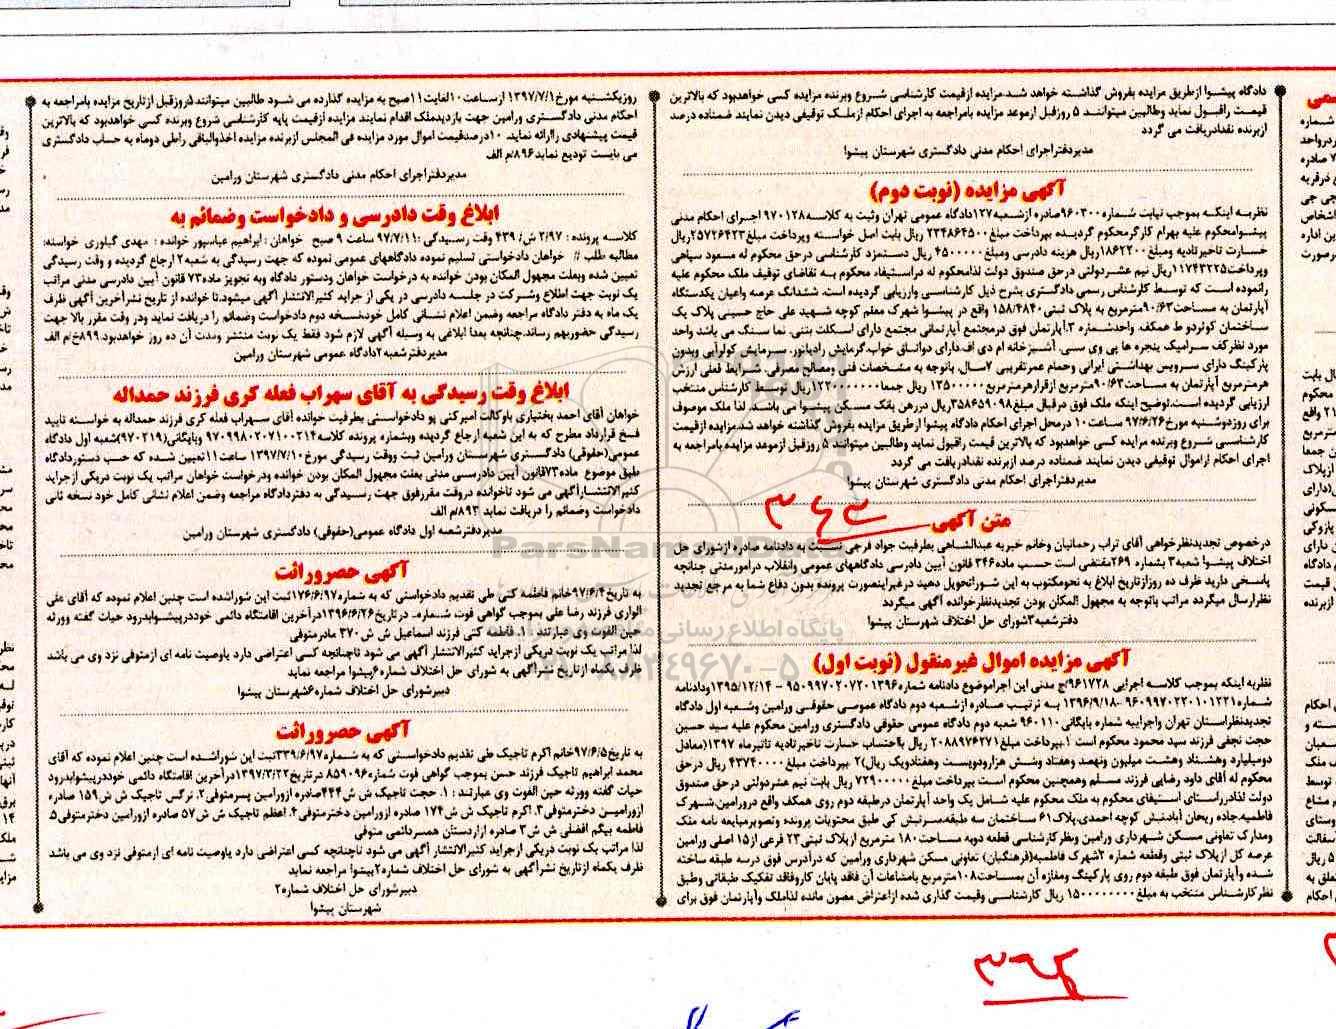 دادگاه پیشوا ازطریق مزایده بفروش گذاشته خواهد شد.مزایده ازقیمت کارشناسی شروع وبرنده مزایده کسی خواهدبود که بالاترین
قیمت راقبول نماید وطالبین میتوانند ۵ روزقبل ازموعد مزایده بامراجعه به اجرای احکام ازملک توقیفی دیدن نمایند ضمناده درصد
ازبرنده نقدادریافت می گردد
مدیردفتراجرای احکام مدنی دادگستری شهرستان پیشوا
آگهی مزایده (نوبت دوم)
نظربه اینکه بموجب نیابت شماره ۹۶۰۳۰۰صادره ازشعبه۱۲۷دادگاه عمومی تهران وثبت به کلاسه۹۷۰۱۲۸ اجرای احکام مدنی
پیشوامحکوم علیه بهرام کارگرمحکوم گردیده بپرداخت مبلغ۲۳۴۸۶۴۵۰۰ ریال بابت اصل خواسته وپرداخت مبلغ۲۵۷۲۶۴۲۳ریال
خسارت تاخیرتادیه ومبلغ۱۸۶۲۲۰۰ریال هزینه دادرسی ومبلغ۴۵۰۰۰۰۰ ریال دستمزد کارشناسی درحق محکوم له مسعود سپاهی
وپرداخت۱۱۷۴۳۲۲۵ریال نیم عشردولتی درحق صندوق دولت لذامحکوم له دراستیفاء محکوم به تقاضای توقیف ملک محکوم علیه
رانموده است که توسط کارشناس رسمی دادگستری بشرح ذیل کارشناسی وارزیابی گردیده است. ششدانگ عرصه واعیان یکدستگاه
آپارتمان به مساحت۹۰/۶۳مترمربع به پلاک ثبتی۱۵۸/۴۸۴۰ واقع در پیشوا شهرک معلم کوچه شهید علی حاج حسینی پلاک یک
ساختمان کوثردو ط همکف، واحدشماره ۳.آپارتمان فوق درمجتمع آپارتمانی مجتمع دارای اسکلت بتنی. نما سنگ می باشد واحد
مورد نظرکف سرامیک پنجره ها پی وی سی. آشپزخانه ام دی اف.دارای دواتاق خواب.گرمایش رادیاتور. سرمایش کولرآبی وبدون
پارکینگ دارای سرویس بهداشتی ایرانی وحمام عمرتقریبی ۷سال. باتوجه به مشخصات فنی ومصالح مصرفی. شرایط فعلی ارزش
هرمترمربع آپارتمان به مساحت۹۰/۶۳مترمربع ازقرارهرمترمربع۱۳۵۰۰۰۰۰ ریال جمعا۱۲۲۰۰۰۰۰۰۰ریال توسط کارشناس منتخب
ارزیابی گردیده است.توضیح اینکه ملک فوق درقبال مبلغ۳۵۸۶۵۹۰۹۸ریال دررهن بانک مسکن پیشوا می باشد. لذا ملک موصوف
برای روزدوشنبه مورخ۹۷/۶/۲۶ ساعت۱۰ درمحل اجرای احکام دادگاه پیشوا ازطریق مزایده بفروش گذاشته خواهد شد.مزایده ازقیمت
کارشناسی شروع وبرنده مزایده کسی خواهدبود که بالاترین قیمت راقبول نماید وطالبین میتوانند ۵ روزقبل ازموعد مزایده بامراجعه به
اجرای احکام ازاموال توقیفی دیدن نمایند ضمناده درصد ازبرنده نقدادریافت می گردد
مدیردفتراجرای احکام مدنی دادگستری شهرستان پیشوا
متن آگهی
درخصوص تجدیدنظرخواهی آقای تراب رحمانیان وخانم خیریه عبدالشاهی بطرفیت جواد فرجی نسبت به دادنامه صادره ازشورای حل
اختلاف پیشوا شعبه۳ بشماره ۲۶۹مقتضی است حسب ماده۳۴۶ قانون آیین دادرسی دادگاههای عمومی وانقلاب درامورمدنی چنانچه
پاسخی دارید ظرف ده روزازتاریخ ابلاغ به نحومکتوب به این شوراتحویل دهید درغیراینصورت پرونده بدون دفاع شما به مرجع تجدید
نظرارسال میگردد مراتب باتوجه به مجهول المکان بودن تجدیدنظرخوانده آگهی میگردد
دفترشعبه۳شورای حل اختلاف شهرستان پیشوا
آگهی مزایده اموال غیرمنقول (نوبت اول)
نظربه اینکه بموجب کلاسه اجرایی ۹۶۱۷۲۸/ج مدنی این اجراموضوع دادنامه شماره۹۵۰۹۹۷۰۲۰۷۲۰۱۳۹۶ - ۱۳۹۵/۱۲/۱۴ودادنامه
شماره۹۶۰۹۹۷۰۲۲۰۱۰۱۲۲۱ -۱۳۹۶/۹/۱۸ به ترتیب صادره ازشعبه دوم دادگاه عمومی حقوقی ورامین وشعبه اول دادگاه
تجدیدنظراستان تهران واجراییه شماره بایگانی۹۶۰۱۱۰ شعبه دوم دادگاه عمومی حقوقی دادگستری ورامین محکوم علیه سید حسین
حجت نجفی فرزند سید محمود محکوم است ۱.بپرداخت مبلغ۲۰۸۸۹۷۶۲۷۱ ریال بااحتساب خسارت تاخیرتادیه تاتیرماه ۱۳۹۷(معادل
دومیلیارد وهشتاد وهشت میلیون ونهصد وهفتاد وشش هزارودویست وهفتادویک ریال)۲ بپرداخت مبلغ۴۳۷۴۰۰۰۰ ریال درحق
محکوم له آقای داود رضایی فرزند مسلم وهمچنین محکوم است بپرداخت مبلغ۷۲۹۰۰۰۰۰ ریال بابت نیم عشردولتی درحق صندوق
دولت لذادرراستای استیفای محکوم به ملک محکوم علیه شامل یک واحد آپارتمان درطبقه دوم روی همکف واقع درورامین.شهرک
فاطمیه.جاده ریحان آبادنبش کوچه احمدی.پلاک۶۱ ساختمان سه طبقه.سرنبش کی طبق محتویات پرونده وتصویرمبایعه نامه ملک
ومدارک تعاونی مسکن شهرداری ورامین وبنظرکارشناسی قطعه دوبه مساحت۱۸۰ مترمربع ازپلاک ثبتی۲۳ فرعی از۱۵ اصلی ورامین
عرصه کل ازپلاک ثبتی وقطعه شماره ۲شهرک فاطمیه(فرهنگیان) تعاونی مسکن شهرداری ورامین که درآدرس فوق درسه طبقه ساخته
شده وآپارتمان فوق طبقه دوم روی پارکینگ ومغازه آن بمساحت۱۰۸مترمربع بامشاعات آن فاقد پایان کاروفاقد تفکیک طبقاتی وطبق
نظرکارشناس منتخب به مبلغ۱۵۰۰۰۰۰۰۰۰ ریال کارشناسی وقیمت گذاری شده ازاعتراض مصون مانده لذاملک وآپارتمان فوق برای
روزیکشنبه مورخ۱۳۹۷/۷/۱ ازساعت۱۰لغایت۱۱صبح به مزایده گذارده می شود طالبین میتوانند۵روزقبل ازتاریخ مزایده بامراجعه به
احکام مدنی دادگستری ورامین جهت بازدیدملک اقدام نمایند مزایده ازقیمت پایه کارشناسی شروع وبرنده کسی خواهدبود که بالاترین
قیمت پیشنهادی راارائه نماید. ۱۰درصدقیمت اموال مورد مزایده فی المجلس ازبرنده مزایده اخذوالباقی راطی دوماه به حساب دادگستری
می بایست تودیع نماید۸۹۶/م الف
مدیردفتراجرای احکام مدنی دادگستری شهرستان ورامین
ابلاغ وقت دادرسی و دادخواست وضمائم به
کلاسه پرونده : ۲/۹۷ ش/ ۴۳۹ وقت رسیدگی :۹۷/۷/۱۱ ساعت ۹ صبح خواهان : ابراهیم عباسپور خوانده : مهدی گیلوری خواسته:
مطالبه طلب // خواهان دادخواستی تسلیم نموده دادگاههای عمومی نموده که جهت رسیدگی به شعبه۲ ارجاع گردیده و وقت رسیدگی
تعیین شده وبعلت مجهول المکان بودن خوانده به درخواست خواهان ودستور دادگاه وبه تجویز ماده۷۳ قانون آیین دادرسی مدنی مراتب
یک نوبت جهت اطلاع وشرکت در جلسه دادرسی در یکی از جراید کثیرالانتشار آگهی میشود.تا خوانده از تاریخ نشرآخرین آگهی ظرف
یک ماه به دفتر دادگاه مراجعه وضمن اعلام نشانی کامل خودنسخه دوم دادخواست وضمائم را دریافت نماید ودر وقت مقرر بالا جهت
رسیدگی حضوربهم رساند.چنانچه بعدا ابلاغی به وسیله آگهی لازم شود فقط یک نوبت منتشر ومدت آن ده روز خواهدبود.۸۹۹خ/م الف
مدیردفترشعبه ۲دادگاه عمومی شهرستان ورامین
ابلاغ وقت رسیدگی به آقای سهراب فعله کری فرزند حمداله
خواهان آقای احمد بختیاری باوکالت امیرکنی پو دادخواستی بطرفیت خوانده آقای سهراب فعله کری فرزند حمداله به خواسته تایید
فسخ قرارداد مطرح که به این شعبه ارجاع گردیده وبشماره پرونده کلاسه۹۷۰۹۹۸۰۲۰۷۱۰۰۲۱۴ وبایگانی(۹۷۰۲۱۹)شعبه اول دادگاه
عمومی(حقوقی) دادگستری شهرستان ورامین ثبت ووقت رسیدگی مورخ۱۳۹۷/۷/۱۰ ساعت۱۱تعیین شده که حسب دستوردادگاه
طبق موضوع ماده۷۳قانون آیین دادرسی مدنی بعلت مجهول المکان بودن خوانده ودرخواست خواهان مراتب یک نوبت دریکی ازجراید
کثیرالانتشارآگهی می شود تاخوانده دروقت مقررفوق جهت رسیدگی به دفتردادگاه مراجعه وضمن اعلام نشانی کامل خود نسخه ثانی
دادخواست وضمائم را دریافت نماید ۸۹۳/م الف
مدیردفترشعبه اول دادگاه عمومی(حقوقی) دادگستری شهرستان ورامین
آگهی حصروراثت
به تاریخ۹۷/۶/۴خانم فاطمه کتی طی تقدیم دادخواستی که به شماره۱۷۶/۶/۹۷ثبت این شوراشده است چنین اعلام نموده که آقای علی
الواری فرزند رضا علی بموجب گواهی فوت شماره- درتاریخ۱۳۹۶/۶/۲۶درآخرین اقامتگاه دائمی خوددرپیشوابدرود حیات گفته وورثه
حین الفوت وی عبارتند : ۱. فاطمه کتی فرزند اسماعیل ش ش ۳۷۰ مادرمتوفی
لذا مراتب یک نوبت دریکی ازجراید کثیرالانتشار آگهی می شود تاچنانچه کسی اعتراضی دارد یاوصیت نامه ای ازمتوفی نزد وی می باشد
ظرف یکماه ازتاریخ نشرآگهی به شورای حل اختلاف شماره ۶پیشوا مراجعه نماید
دبیرشورای حل اختلاف شماره۶شهرستان پیشوا
آگهی حصروراثت
به تاریخ۹۷/۶/۵خانم اکرم تاجیک طی تقدیم دادخواستی که به شماره۳۳۹/۶/۹۷ثبت این شوراشده است چنین اعلام نموده که آقای
محمد ابراهیم تاجیک فرزند حسن بموجب گواهی فوت شماره۸۵۹۰۹۶ درتاریخ۱۳۹۷/۳/۲۲درآخرین اقامتگاه دائمی خوددرپیشوابدرود
حیات گفته وورثه حین الفوت وی عبارتند : ۱. حجت تاجیک ش ش۴۴۴صادره ازورامین پسرمتوفی۲. نرگس تاجیک ش ش۱۵۹ صادره
ازورامین دخترمتوفی۳. اکرم تاجیک ش ش۱۷۴ صادره ازورامین دخترمتوفی۴. اعظم تاجیک ش ش۵۷ صادره ازورامین دخترمتوفی۵.
فاطمه بیگم افضلی ش ش۳ صادره ازاردستان همسردائمی متوفی
لذا مراتب یک نوبت دریکی ازجراید کثیرالانتشار آگهی می شود تاچنانچه کسی اعتراضی دارد یاوصیت نامه ای ازمتوفی نزد وی می باشد
ظرف یکماه ازتاریخ نشرآگهی به شورای حل اختلاف شماره۲پیشوا مراجعه نماید
دبیرشورای حل اختلاف شماره۲
شهرستان پیشوا
ParsNamadData
پایگاه اطلاع رسانی
۰۲۱-۸۸۳۴۹۶۷۰-۵